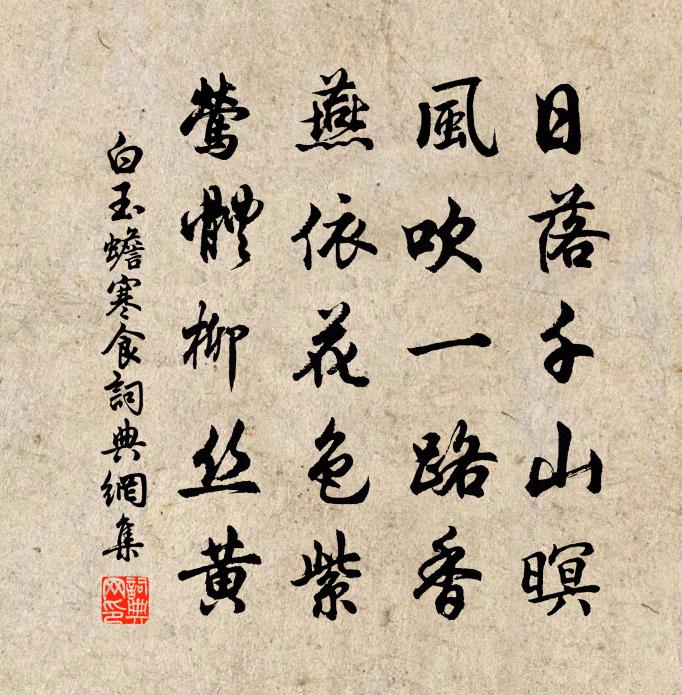 日落千山暝
風吹一路香
燕依花色紫
鶯體柳丝黄
白玉蟾寒食詞典網集
詞典网印